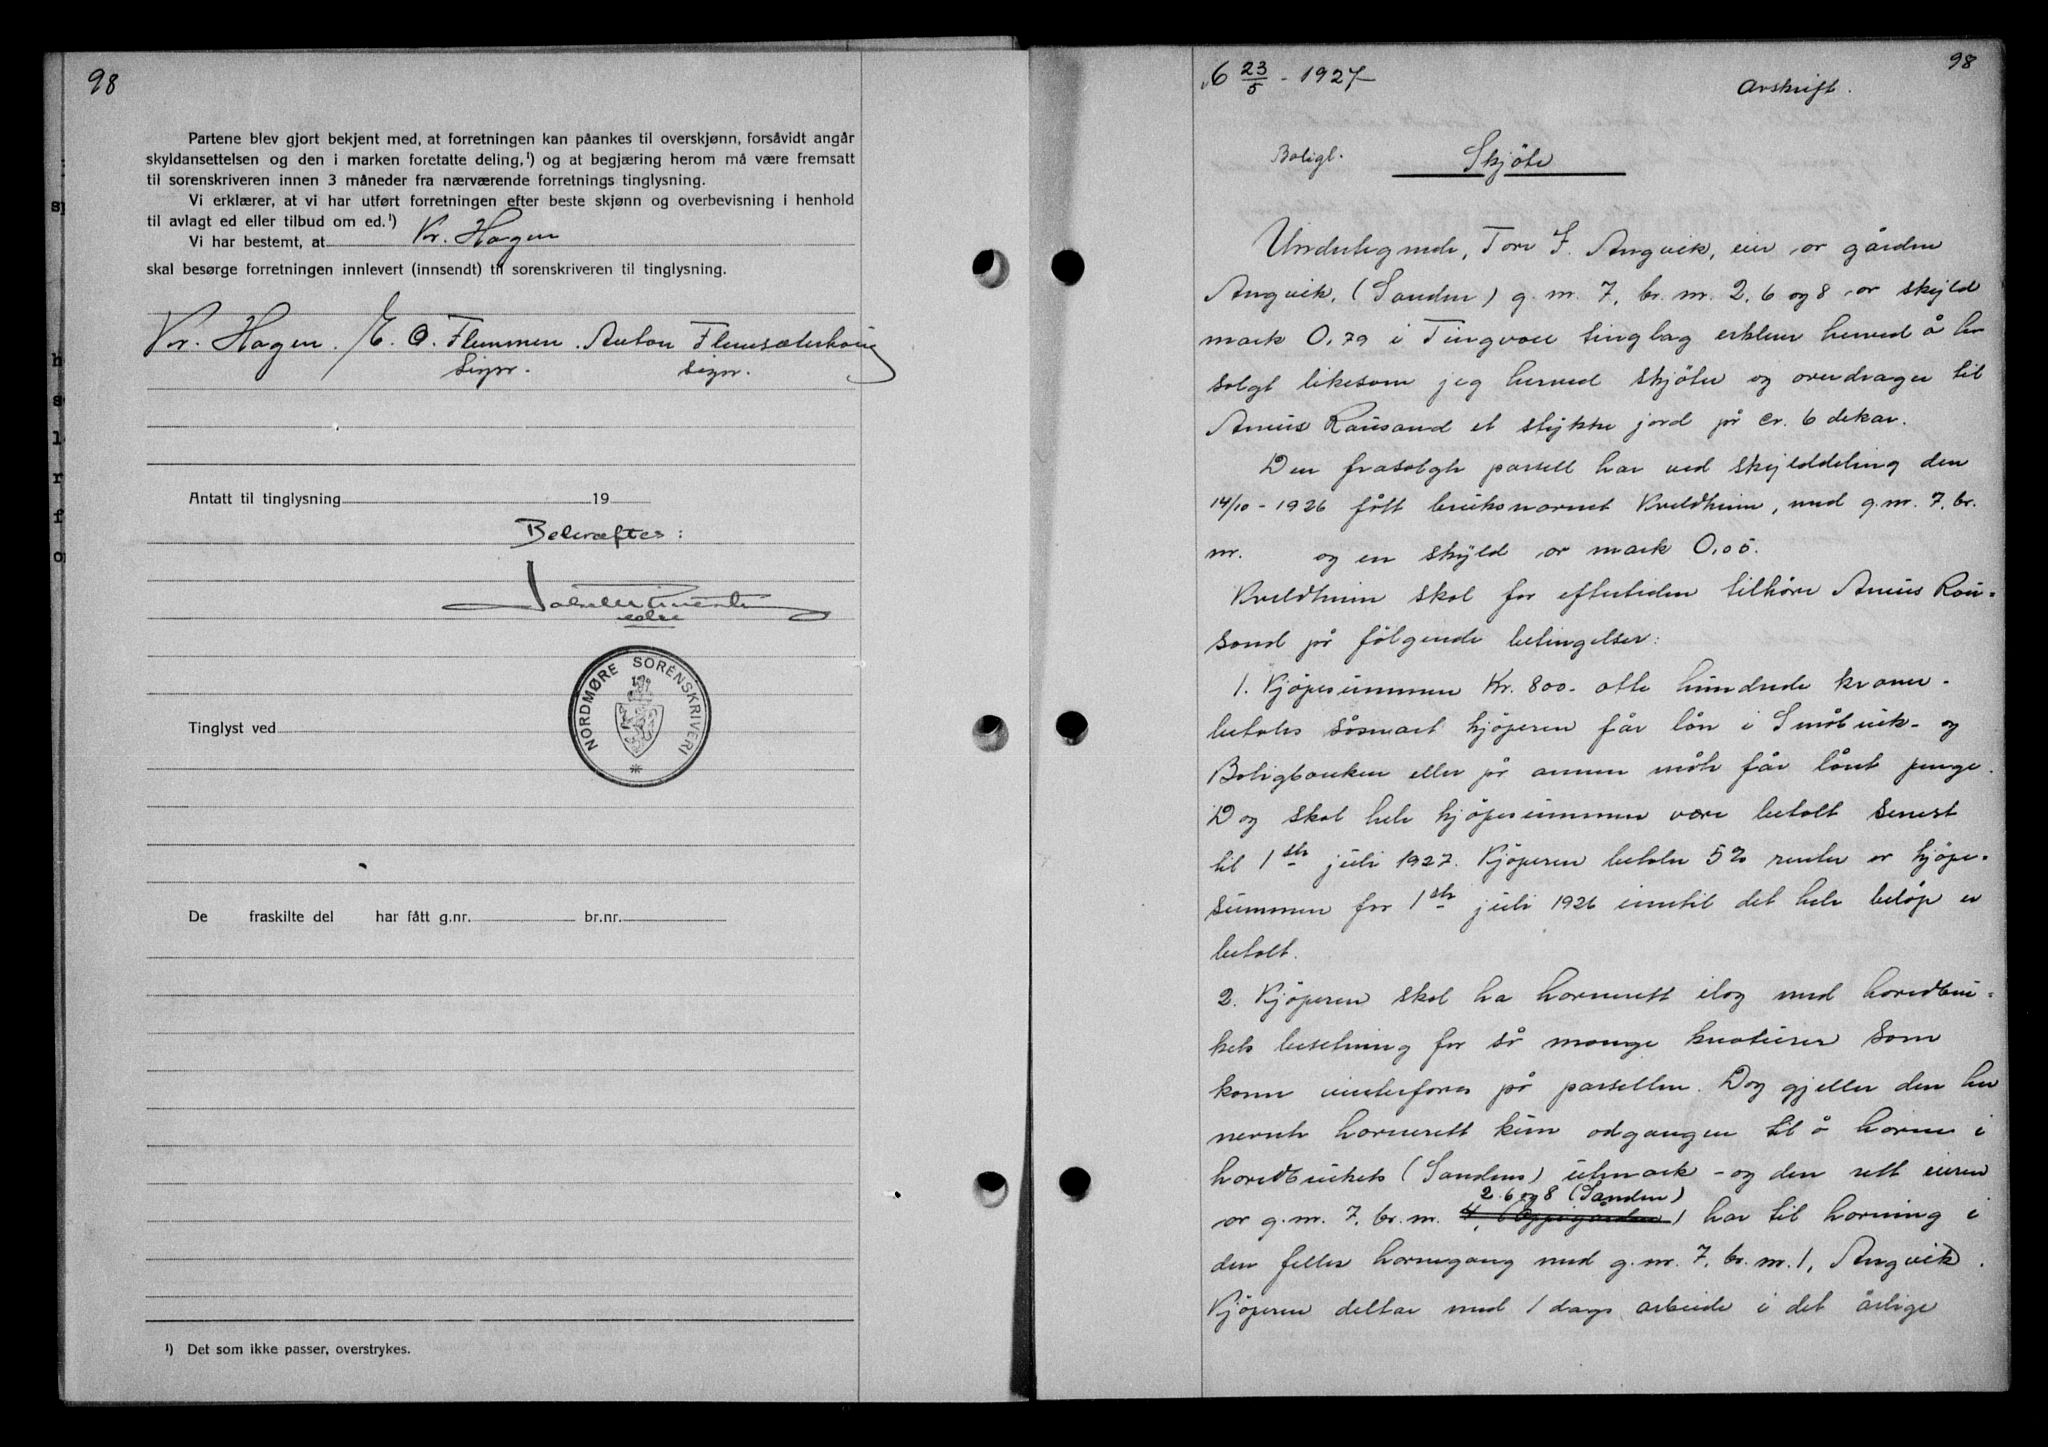 98
Partene blev gjort bekjent med, at forretningen kan påankes til overskjønn, forsåvidt angår
skyldansettelsen og den i marken foretatte deling,¹) og at begjæring herom må være fremsatt
til sorenskriveren innen 3 måneder fra nærværende forretnings tinglysning.
Vi erklærer, at vi har utført forretningen efter beste skjønn og overbevisning i henhold
til avlagt ed eller tilbud om ed.¹)
Vi har bestemt, at Kr. Hagen
skal besørge forretningen innlevert (innsendt) til sorenskriveren til tinglysning.
Kr. Hagen. E. O. Flemmen. Anton Flemsæterhaug
sign. sign.
Antatt til tinglysning 19
Bekræftes:
NORDMØRE SORENSKRIVERI
Tinglyst ved
De fraskilte del har fått g.nr. br.nr.
¹) Det som ikke passer, overstrykes.
98
6 23/5 - 1927
Avskrift.
Boligl. Skjöte
Undertegnede, Tore F. Angvik, eier av gården
Angvik, (Sanden) g. nr. 7, br. nr. 2, 6 og 8 av skyld
mark 0,79 i Tingvoll tinglag erklærer herved å ha
solgt likesom jeg herved skjöter og overdrager til
Anéus Rausand et stykke jord på ca. 6 dekar.
Den frasolgte parsell har ved skylddeling den
14/10 - 1926 fått bruksnavnet Kveldheim, med g. nr. 7, br.
nr. og en skyld av mark 0,05.
Kveldheim skal for eftertiden tilhöre Anéus Rau-
sand på fölgende betingelser:
1. Kjöpesummen Kr. 800.- otte hundrede kroner -
betales såsnart kjöperen får lån i Småbruk- og
Boligbanken eller på annen måte får lånt penge.
Dog skal hele kjöpesummen være betalt senest
til 1ste juli 1927. Kjöperen betaler 5% renter av kjöpe-
summen fra 1ste juli 1926 inntil det hele belöp er
betalt.
2. Kjöperen skal ha havnerett ilag med hovedbru-
kets besetning for så mange kreaturer som
kann vinterfores på parsellen. Dog gjeller den her
nevnte havnerett kun adgangen til å havne i
hovedbrukets (Sandens) utmark - og den rett eieren
2. 6 og 8 (Sanden)
av g. nr. 7, br. nr. 4, (Oppigården) har til havning i
den felles havnegang med g. nr. 7, br. nr. 1, Angvik.
Kjöperen deltar med 1 dags arbeide i det årlige